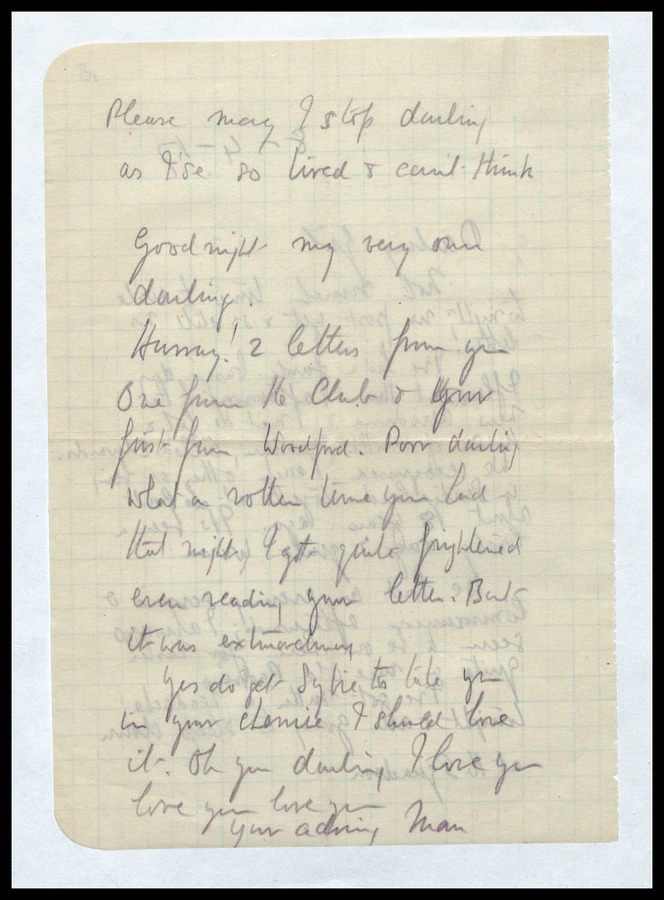 Please may I stop darling
as I'se so tired & can't think
Goodnight my very own
darling.
Hurray! 2 letters from you
One from the Club & your
first from Woodford. Poor darling
what a rotten time you had
that night I got quite frightened
even reading your letter. But
it was extraordinary
Yes do get Sylvie to take you
in your chemie I should love
it. Oh you darling I love you
love you love you
your adoring Man